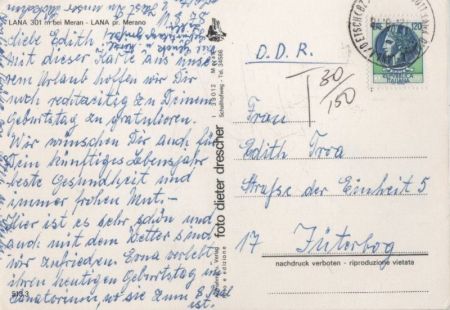 LANA 301 m bei Meran - LANA pr. Merano
Liebe Edith,
mit dieser Karte aus unse-
rem Urlaub hoffen wir Dir
auch rechtzeitig zu Deinem
Geburtstag zu gratulieren.
Wir wünschen Dir auch für
Dein künftiges Lebensjahr
beste Gesundheit und
immer frohen Mut. -
Hier ist es sehr schön und
auch mit dem Wetter sind
wir zufrieden. Erna verlebt
ihren heutigen Geburtstag im
Sanatorium, wo sie zum
ist.
foto dieter drescher
D.D.R.
T 30/150
120
Frau
Edith
Straße der Einheit 5
17 Jüterbog
nachdruck verboten - riproduzione vietata